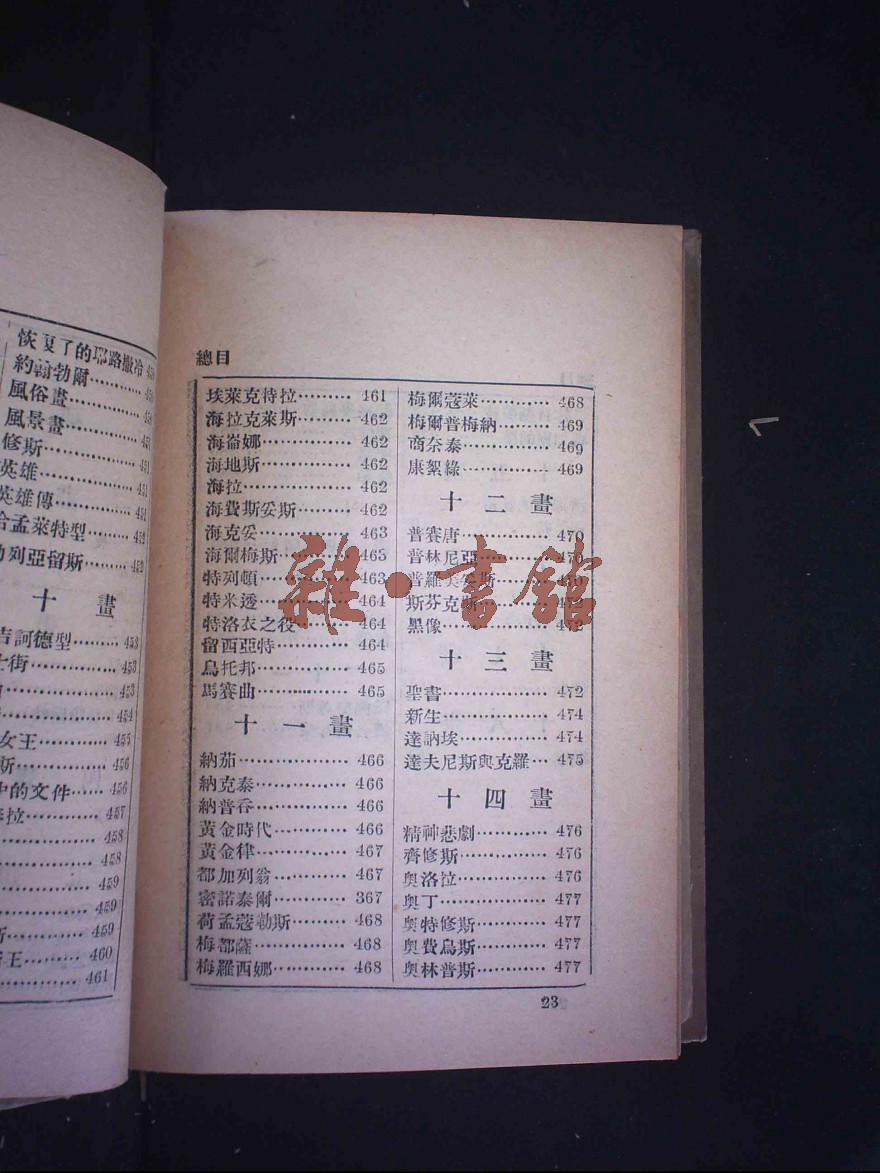 恢复了的耶路撒冷
約翰勃爾
風俗畫
風景畫
修斯
英雄
英雄傳 451
孟萊特型 452
列亞留斯 452
十 畫
吉訶德型 453
士街 453
453
454
女王 455
斯 456
中的文件 456
拉 457
458
458
459
459
459
王 460
461
總目
埃萊克特拉 461
海拉克萊斯 462
海崙娜 462
海地斯 462
海拉 462
海費斯妥斯 462
海克妥 463
海爾梅斯 463
特列頓 463
特米透 464
特洛衣之役 464
留西亞特 464
烏托邦 465
馬賽曲 465
十一畫
納茄 466
納克泰 466
納普吞 466
黃金時代 466
黃金律 467
都加列翁 467
密諾泰爾 367
荷孟蔻勒斯 468
梅都薩 468
梅羅西娜 468
梅爾蔻萊 468
梅爾普梅納 469
商奈泰 469
康絮綠 469
十二畫
普賽唐 470
普林尼亞 470
普羅 妥斯
斯芬克斯
黑像
十三畫
聖書 472
新生 474
達訥埃 474
達夫尼斯與克羅 475
十四畫
精神悲劇 476
齊修斯 476
奥洛拉 476
奥丁 477
奥特修斯 477
奥費烏斯 477
奥林普斯 477
23
雜·書館